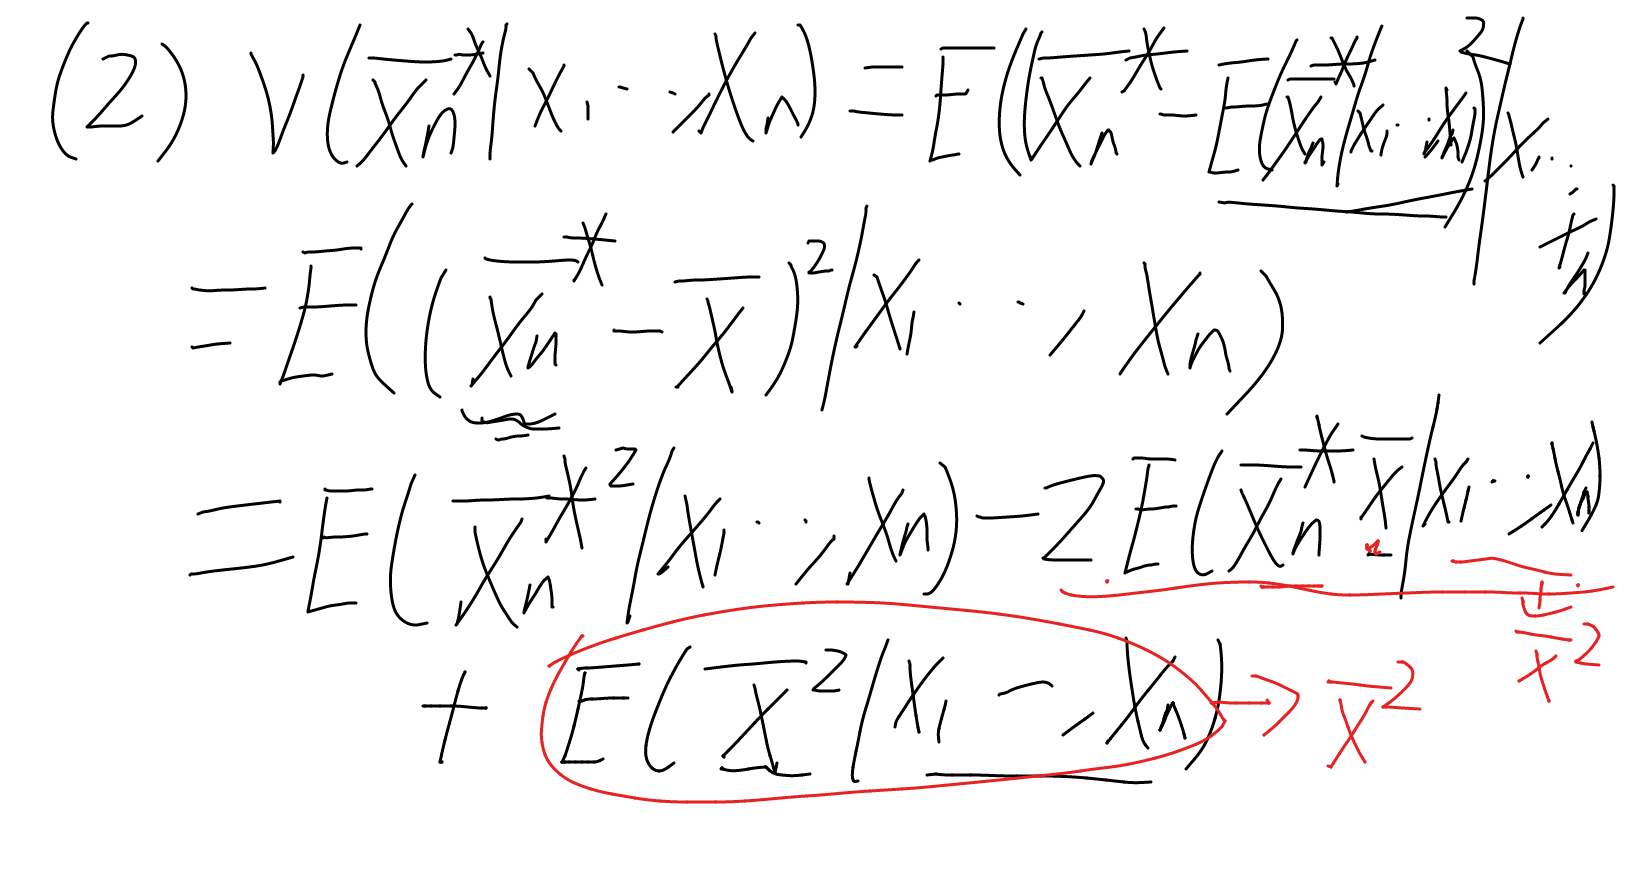 (2) V(X̄n*|X1..,Xn) = E((X̄n* - E(X̄n*|X1..,Xn))²|X1..,Xn)
= E((X̄n* - X̄)²|X1..,Xn)
= E(X̄n*²|X1..,Xn) - 2E(X̄n* X̄|X1..,Xn)
X̄²
+ E(X̄²|X1 ~,Xn) → X̄²